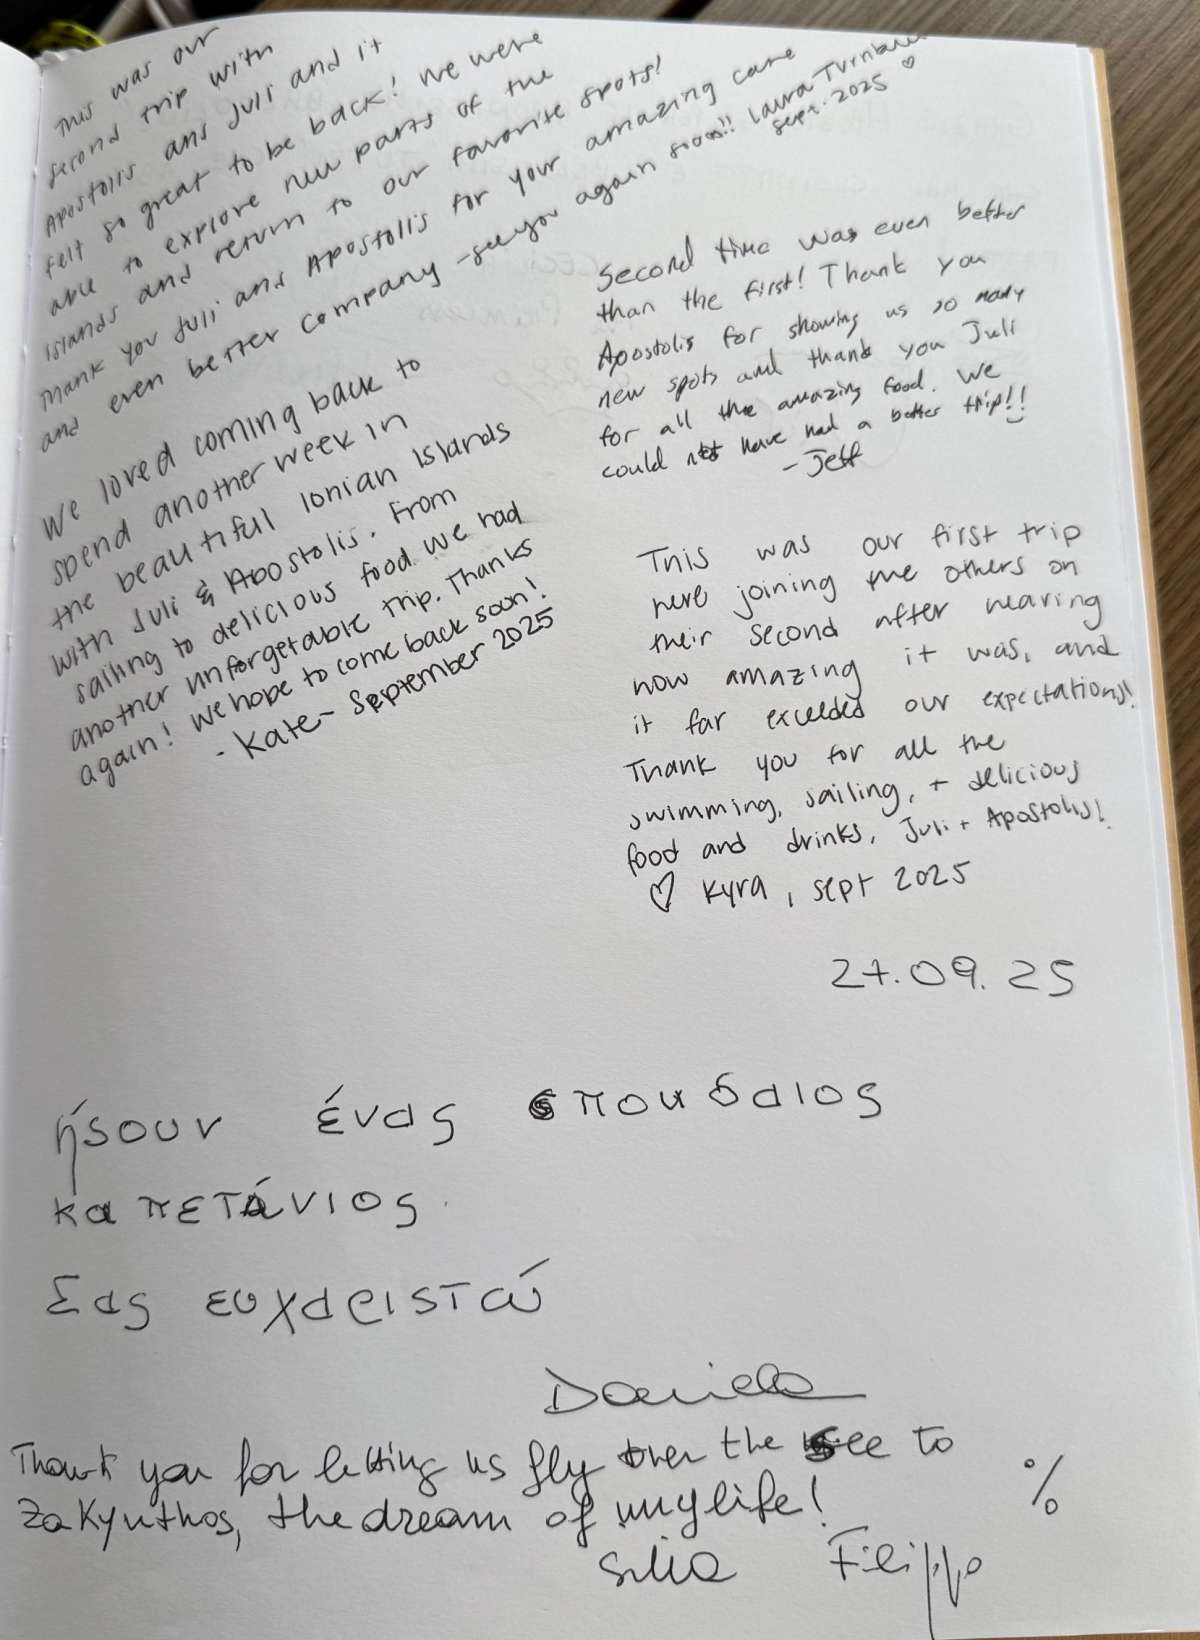 This was our
second trip with
Apostolis ans Juli and it
felt so great to be back! We were
able to explore new parts of the
islands and return to our favorite spots!
Thank you Juli and Apostolis for your amazing care
and even better company - see you again soon!! Laura
sept. 2025 ♡
We loved coming back to
spend another week in
the beautiful Ionian Islands
with Juli & Apostolis. From
sailing to delicious food we had
another unforgetable trip. Thanks
again! We hope to come back soon!
- Kate - September 2025
Second time was even better
than the first! Thank you
Apostolis for showing us so many
new spots and thank you Juli
for all the amazing food. We
could not have had a better trip!!
- Jeff
This was our first trip
here joining the others on
their second after hearing
how amazing it was, and
it far exceeded our expectations!
Thank you for all the
swimming, sailing, + delicious
food and drinks, Juli + Apostolis!
♡ Kyra, sept 2025
27.09.25
ήσουν ένας σπουδαιος
καπετάνιος
Σας ευχαριστώ
Daniela
Thank you for letting us fly over the see to
Zakynthos, the dream of my life!
Silia Filippo
%